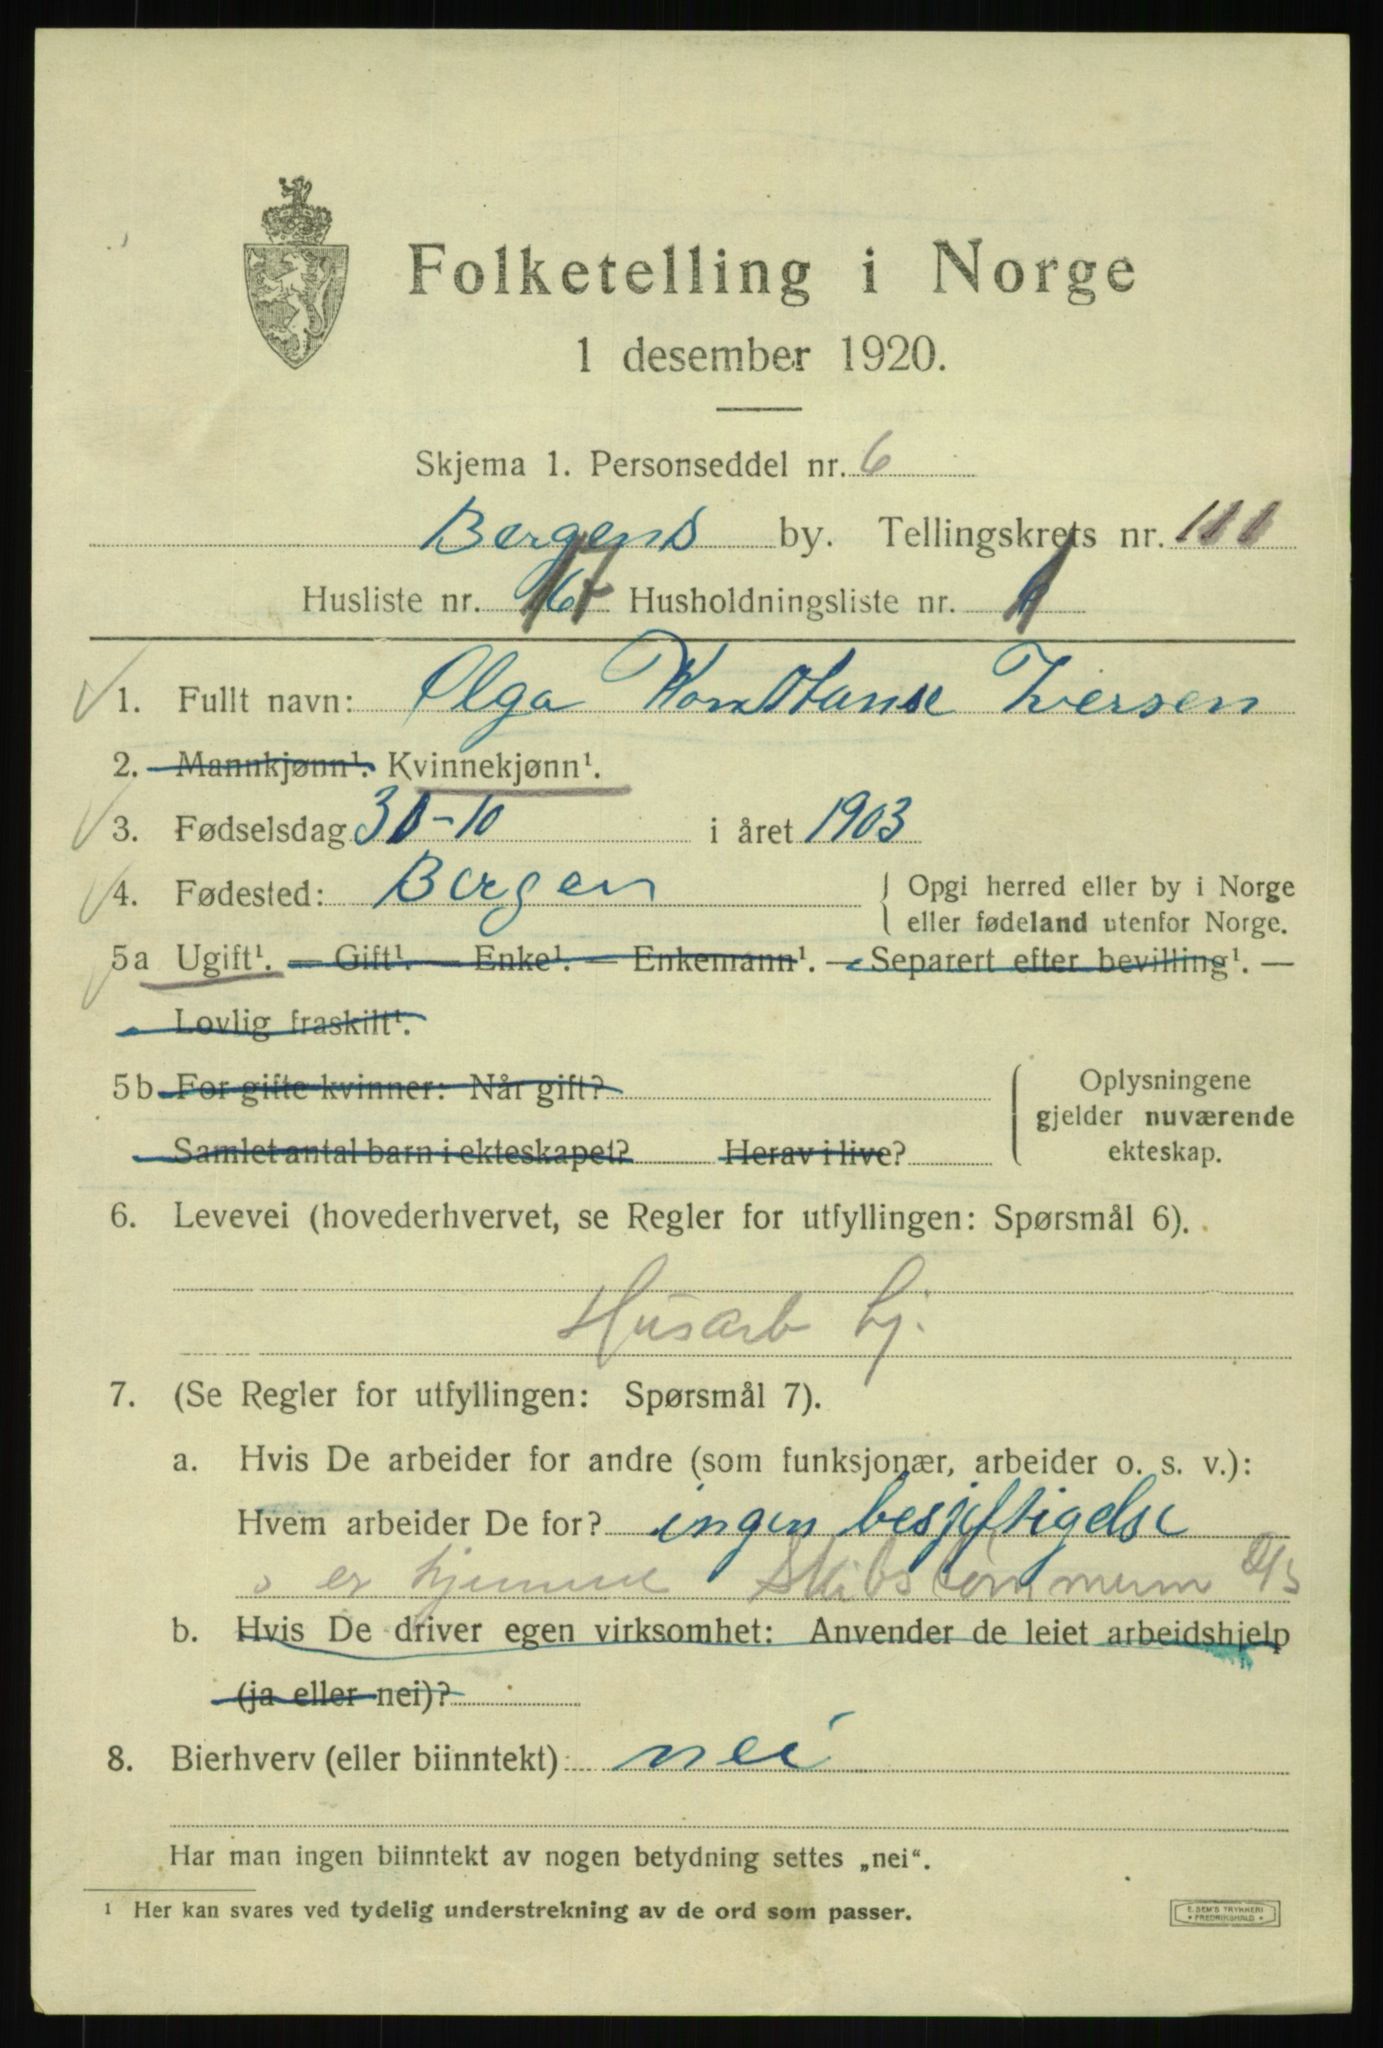 Folketelling i Norge
1 desember 1920.
Skjema 1. Personseddel nr. 6
Bergens by. Tellingskrets nr. 111
Husliste nr. 17 Husholdningsliste nr. 1
1. Fullt navn: Olga Konstanse Iversen
2. Mannkjønn¹. Kvinnekjønn¹.
3. Fødselsdag 30-10 i året 1903
4. Fødested: Bergen { Opgi herred eller by i Norge
eller fødeland utenfor Norge.
5a Ugift¹. — Gift¹. — Enke¹. — Enkemann¹. — Separert efter bevilling¹. —
Lovlig fraskilt¹.
5b For gifte kvinner: Når gift? Oplysningene
gjelder nuværende
Samlet antal barn i ekteskapet? Herav i live? ekteskap.
6. Levevei (hovederhvervet, se Regler for utfyllingen: Spørsmål 6).
Husarb hj.
7. (Se Regler for utfyllingen: Spørsmål 7).
a. Hvis De arbeider for andre (som funksjonær, arbeider o. s. v.):
Hvem arbeider De for? ingen besjeftigelse
er hjemme Skibstømmerm
b. Hvis De driver egen virksomhet: Anvender de leiet arbeidshjelp
(ja eller nei)?
8. Bierhverv (eller biinntekt) nei
Har man ingen biinntekt av nogen betydning settes „nei“.
1 Her kan svares ved tydelig understrekning av de ord som passer.
E. SEM'S TRYKKERI
FREDRIKSHALD